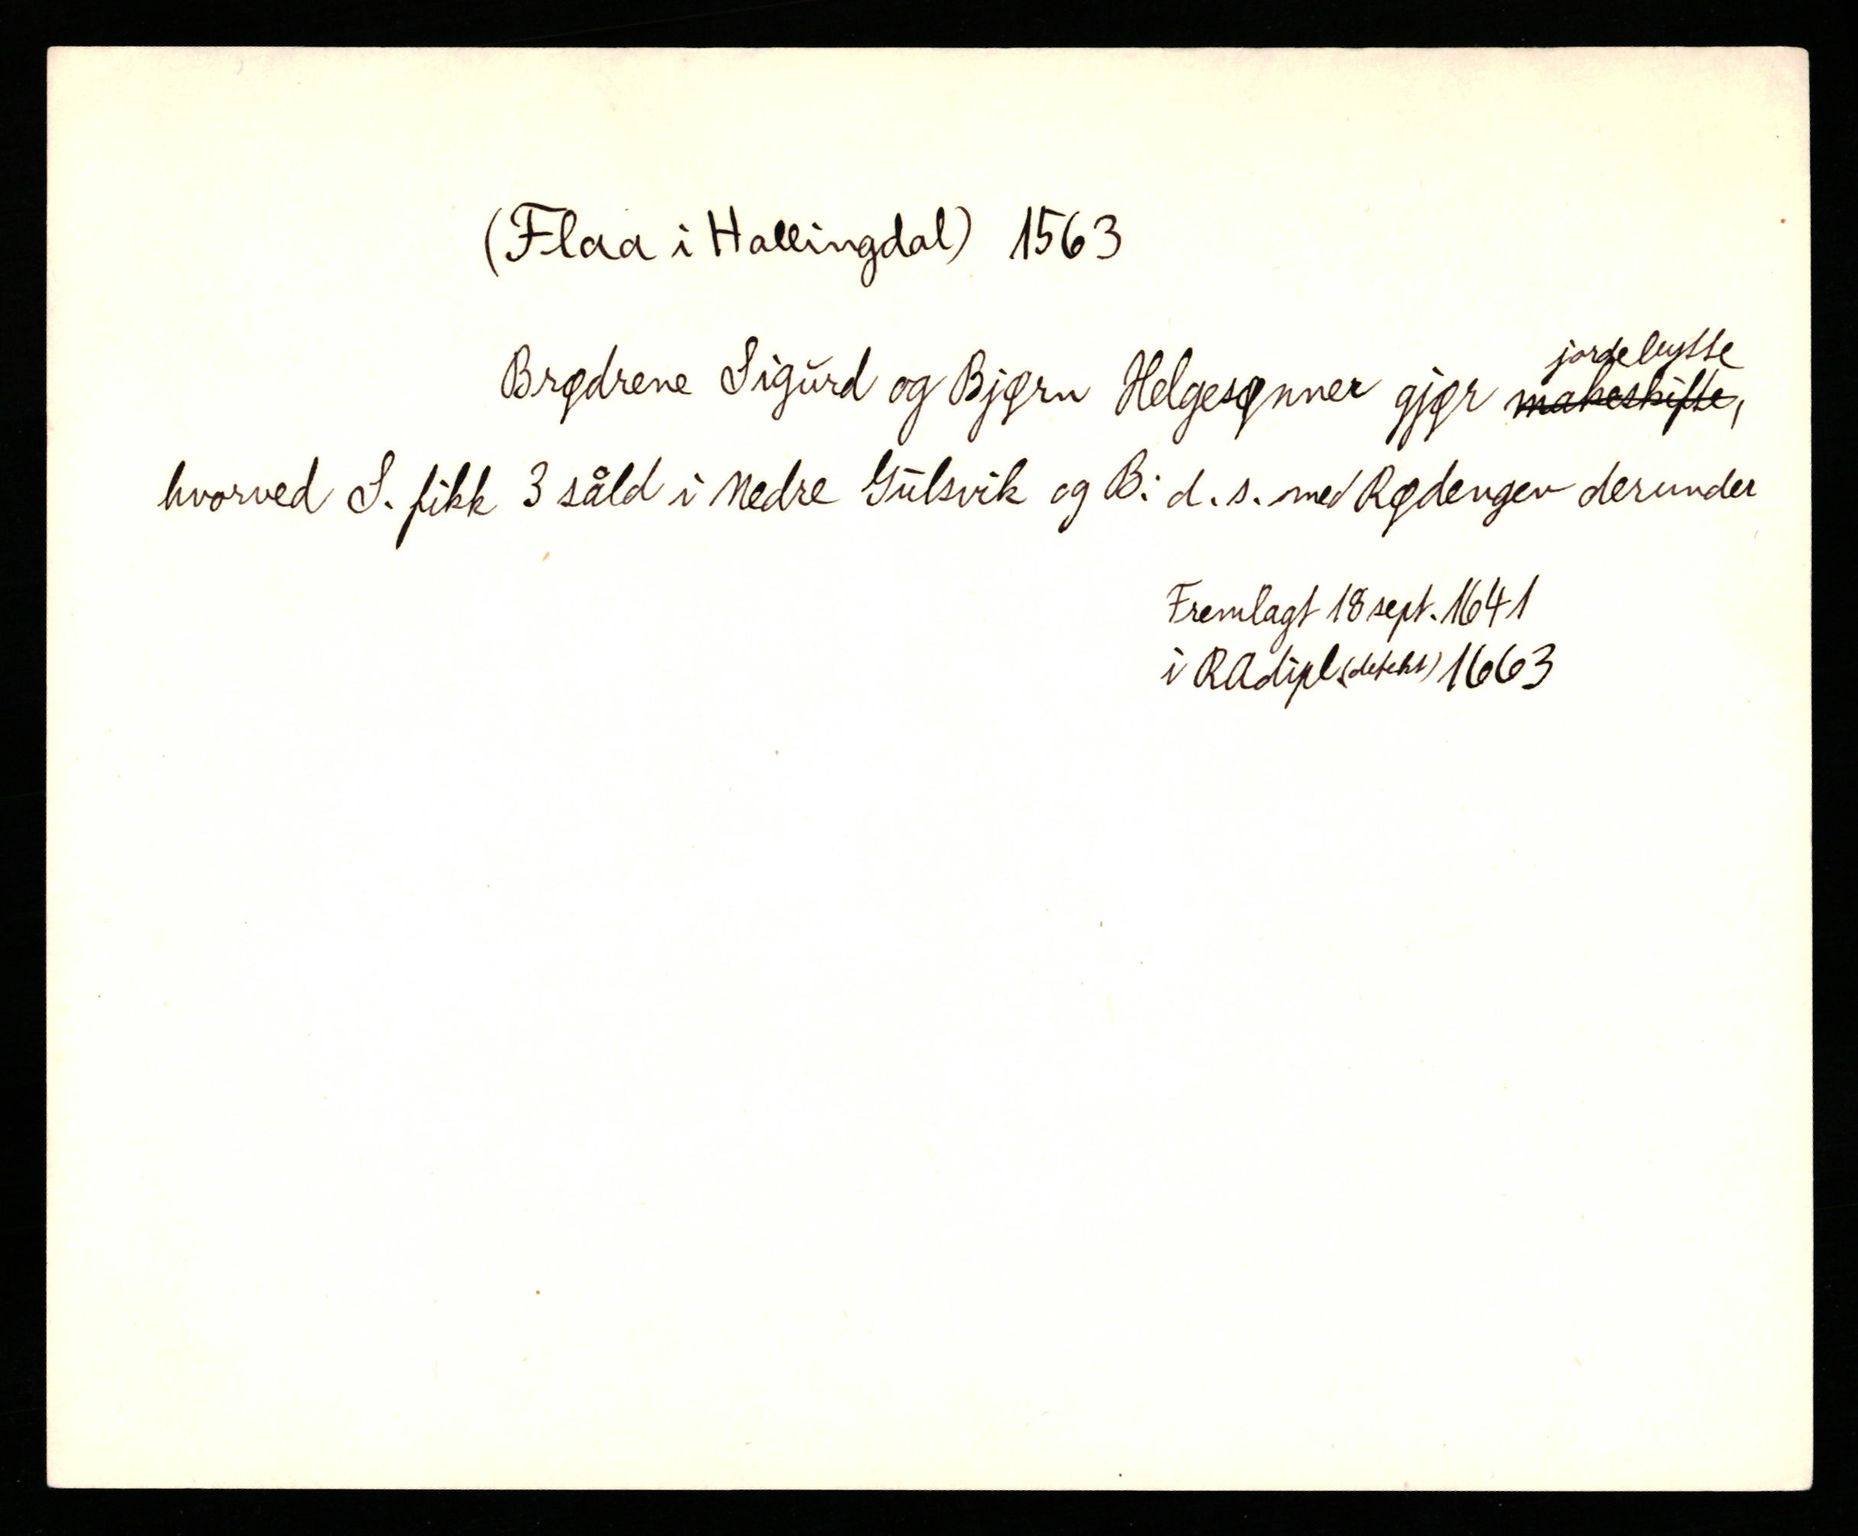 (Flaa i Hallingdal) 1563
jordebytte
Brødrene Sigurd og Bjørn Helgesønner gjør makeskifte,
hvorved S. fikk 3 såld i Nedre Gulsvik og B. d. s. med Rødengen derunder
Fremlagt 18 sept. 1641
i RAdipl. (defekt) 1663